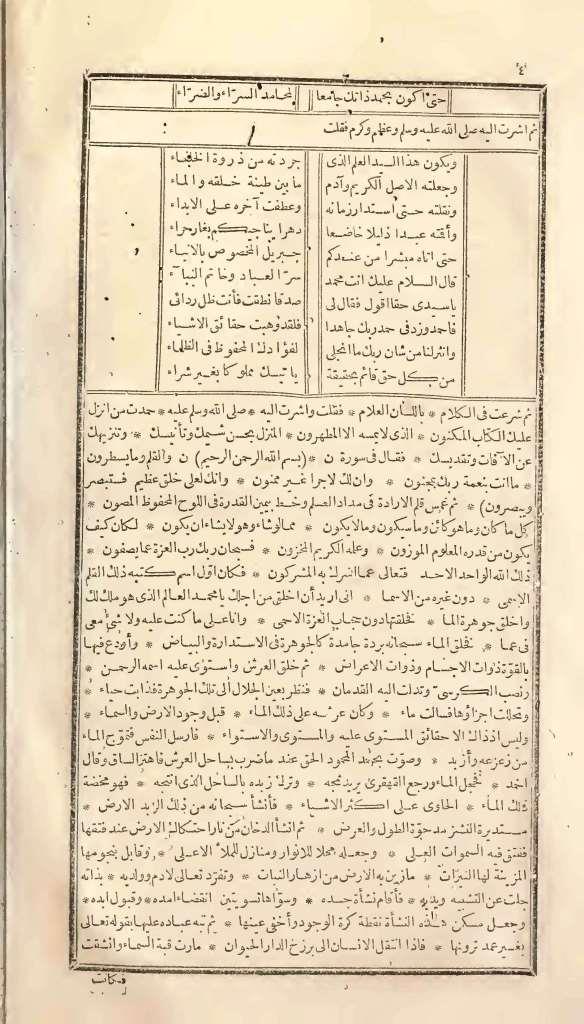 ٤
حتى أكون بحمد ذاتك جامعا لمحامد السراء والضراء
ثم اشرت اليه صلى الله عليه وسلم وعظم وكرم فقلت
ويكون هذا السيد العلم الذى جردته من ذروة الخلفاء
وجعلته الاصل الكريم وآدم ما بين طينة خلقه والماء
ونقلته حتى استدار زمانه وعطفت آخره على الابداء
وأقته عبدا ذليلا خاضعا دهرا يناجيكم بغار حراء
حتى اتاه مبشرا من عندكم جبريل المخصوص بالانباء
قال السلام عليك انت محمد سر العباد وخاتم النبآء
ياسيدى حقا اقول فقال لى صدقا نطقت فأنت ظل ردائى
فاحمد وزد فى حمد ربك جاهدا فلقد وهبت حقائق الاشياء
وانثر لنا من شان ربك ما انجلى لفؤادك المحفوظ فى الظلماء
من كل حق قائم بحقيقة ياتيك مملوكا بغير شراء
ثم شرعت فى الكلام * باللسان العلام * فقلت واشرت اليه * صلى الله وسلم عليه * حمدت من انزل
عليك الكتاب المكنون * الذى لايمسه الا المطهرون * المنزل بحسن شيمك وتأنيسك * وتنزيهك
عن الآفات وتقديسك * فقال فى سورة ن * (بسم الله الرحمن الرحيم) ن والقلم ومايسطرون
* ماانت بنعمة ربك بمجنون * وان لك لاجرا غير ممنون * وانك لعلى خلق عظيم فستبصر
ويبصرون) * ثم غمس قلم الارادة فى مداد العلم وخط بيمين القدرة فى اللوح المحفوظ المصون *
كل ماكان وما هو كائن وماسيكون ومالايكون * ممالوشاء وهو لايشاء ان يكون * لكان كيف
يكون من قدره المعلوم الموزون * وعلمه الكريم المخزون * فسبحان ربك رب العزة عما يصفون *
ذلك الله الواحد الاحد فتعالى عما اشرك به المشركون * فكان اول اسم كتبه ذلك القلم
الاسمى * دون غيره من الاسما * انى اريد أن اخلق من اجلك يامحمد العالم الذى هو ملك لك
واخلق جوهرة الماء * فخلقتها دون حجاب العزة الاحمى * وانا على ما كنت عليه ولا شئ معى
فى عما * فخلق الماء سبحانه بردة جامدة كالجوهرة فى الاستدارة والبياض * وأودع فيها
بالقوة ذوات الاجسام وذوات الاعراض * ثم خلق العرش واستوى عليه اسمه الرحمن *
ونصب الكرسى وتدلت اليه القدمان * فنظر بعين الجلال الى تلك الجوهرة فذابت حياء *
وتحللت اجزاؤها فسالت ماء * وكان عرشه على ذلك الماء * قبل وجود الارض والسماء *
وليس اذ ذاك الا حقائق المستوى عليه والمستوى والاستواء * فارسل النفس فتموج الماء
من زعزعه وأزبد * وصوت بحمد المحمود الحق عند ماضرب بساحل العرش فاهتز الساق وقال له انا
احمد * فخجل الماء ورجع القهقرى يريد ثبجه * وترك زبده بالساحل الذى انتجه * فهو مخضة
ذلك الماء * الحاوى على اكثر الاشياء * فأنشأ سبحانه من ذلك الزبد الارض *
مستديرة النشز مدحوة الطول والعرض * ثم انشأ الدخان من نار احتكاك الارض عند فتقها
ففتق فيه السموات العلى * وجعله محلا للانوار ومنازل للملأ الاعلى * وقابل بنجومها
المزينة لها النيرات * مازين به الارض من ازهار النبات * وتفرد تعالى لادم وولديه * بذاته
جلت عن التشبيه ويديه * فأقام نشأة جسده * وسواها تسويتين انقضاء امده * وقبول ابده *
وجعل مسكن هذه النشأة نقطة كرة الوجود وأخفى عينها * ثم نبه عباده عليها بقوله تعالى
بغير عمد ترونها * فاذا انتقل الانسان الى برزخ الدار الحيوان * مارت قبة السماء وانشقت
فكانت